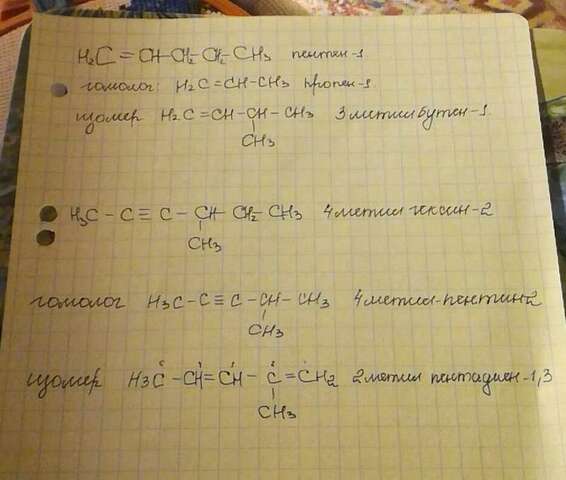 H₂C = CH-CH₂-CH₂-CH₃ пентен-1
гомолог: H₂C = CH-CH₃ пропен-1
изомер H₂C = CH-CH-CH₃ 3 метил бутен-1
CH₃
H₃C - C ≡ C - CH - CH₂- CH₃ 4 метил гексин-2
CH₃
гомолог H₃C - C ≡ C - CH - CH₃ 4 метил-пентин2
CH₃
изомер H₃C - CH = CH - C = CH₂ 2 метил пентадиен-1,3
CH₃